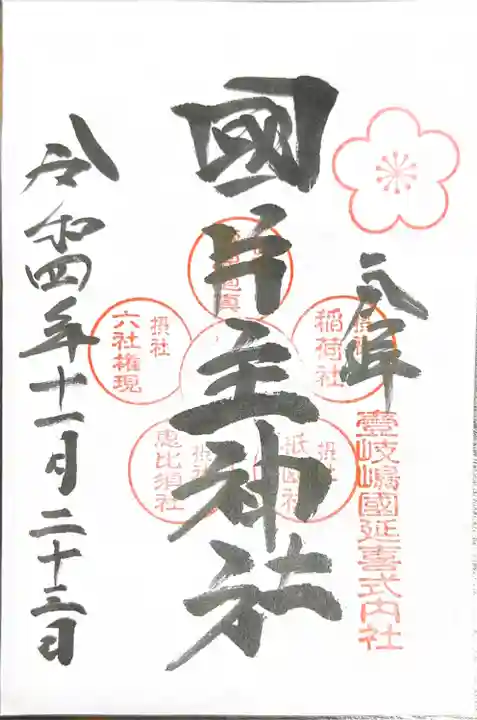 奉拝
壹岐嶋國延喜式内社
國片主神社
摂社
稲荷社
摂社
祇園社
摂社
恵比須社
摂社
六社権現
令和四年十一月二十三日